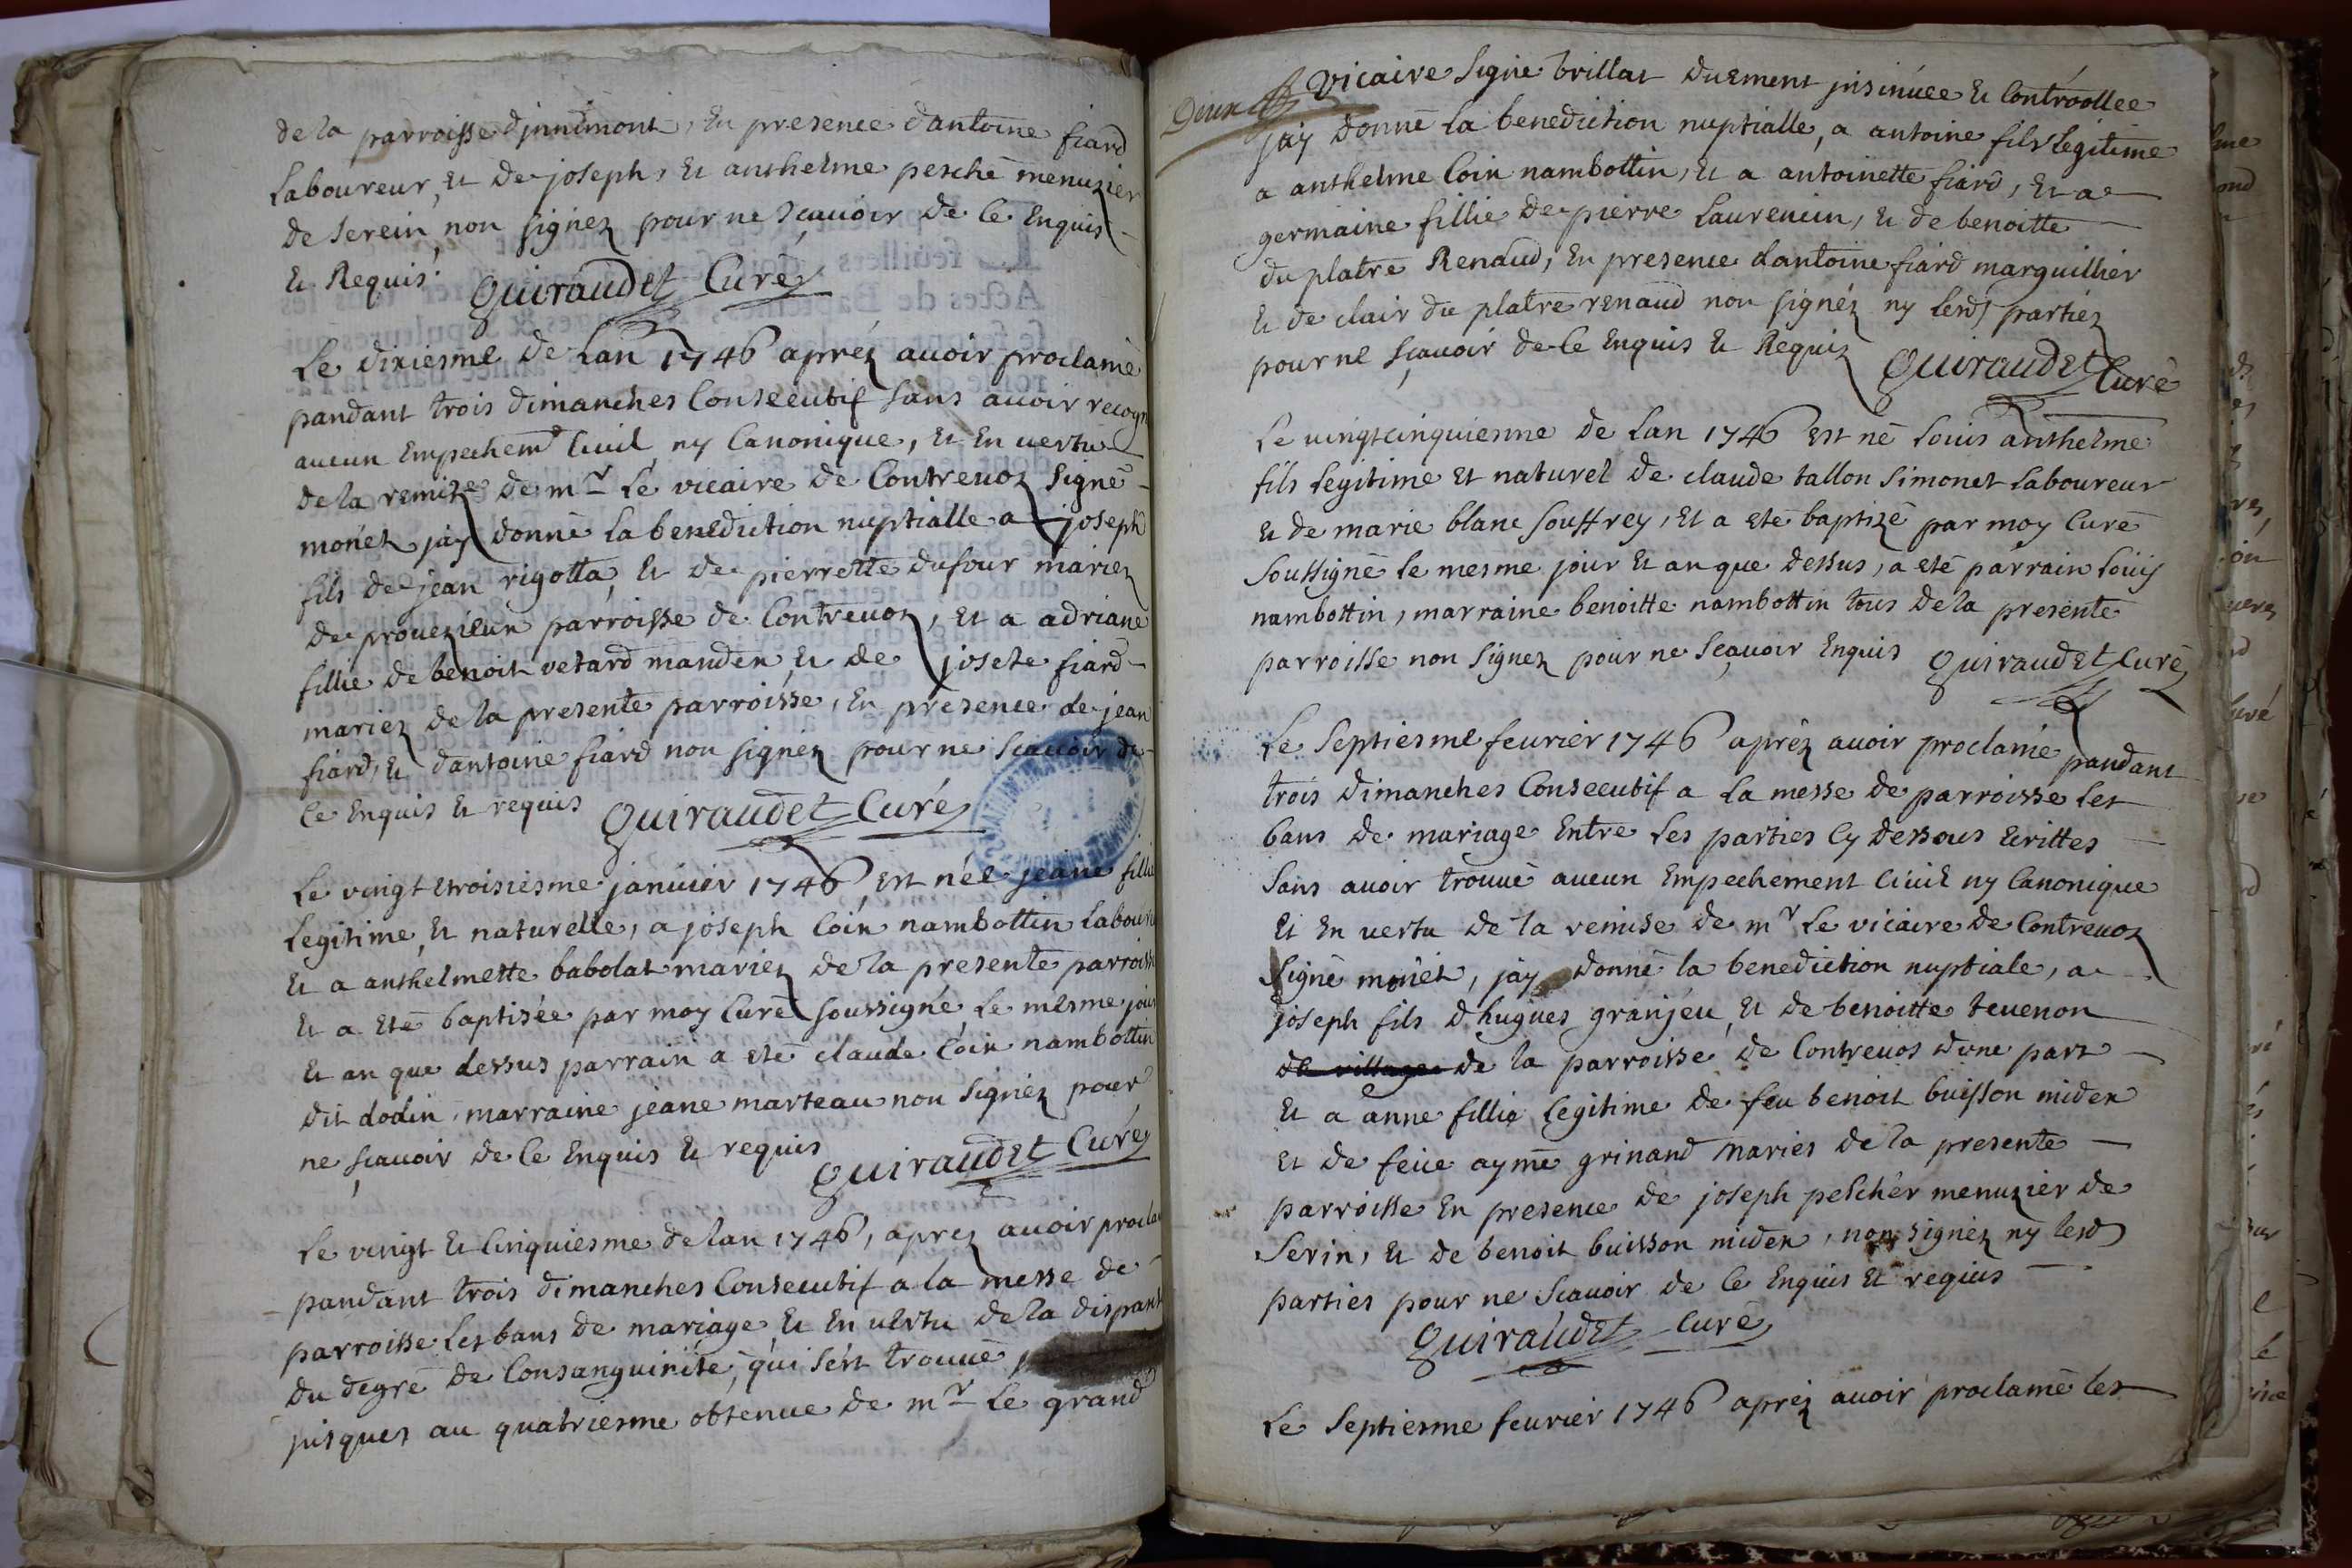 de la parroisse dinnimont, En presence dantoine fiard
Laboureur, et de joseph, Et anthelme pesché menuzier
de serein, non signez pour ne scauoir de ce Enquis
Et Requis. Quiraudet Curé
Le dixiesme de Lan 1746 apréz auoir proclamé
pandant trois dimanches Consecutif sans auoir recogn
aucun Empechemt Ciuil ny Canonique, et En uertu
de la remize de mr Le vicaire de Contreuoz signé
monét jay donné La benediction nuptialle a joseph
fils de jean rigotta, Et de pierrette dufour mariez
de prouezieux parroisse de Contreuoz, Et a adriane
fillie de benoit vetard manden, Et de josete fiard
mariez de la presente parroisse, En presence de jean
fiard, Et dantoine fiard non signéz pour ne scauoir de
Ce Enquis Et requis Quiraudet Curé
Le vingt etroisiesme januier 1746 Est née jeane fillie
Legitime, Et naturelle, a joseph Coin nambottin Labour
Et a anthelmette babolat mariez de la presente parroiss
Et a Eté baptisée par moy Curé soussigné Le mesme jour
Et an que dessus parrain a eté claude Coin nambottin
dit dodin, marraine jeane marteau non signéz pour
ne scauoir de Ce Enquis Et requis
Quiraudet Curé
Le vingt Et Cinquiesme de lan 1746, aprez auoir procla
pandant trois dimanches Consecutif a la messe de
parroisse Les bans de mariage, Et En uertu de la dispans
du degré de Consanguinité, qui sest trouué
jusques au quatriesme obtenue de mr Le grand
Vicaire signé brillat duement insinuée Et Controollée
jay donné La benediction nuptialle, a antoine fils Legitime
a anthelme Coin nambottin, Et a antoinette fiard, Et a
germaine fillie de pierre Laurencin, Et de benoitte
du platre Renaud, En presence dantoine fiard marguillier
Et de clair du platre renaud non signéz ny lesd parties
pour ne scauoir de Ce Enquis Et Requiz Quiraudet Curé
Le uingtcinquiesme de Lan 1746 Est né Louis anthelme
fils Legitime Et naturel de claude tallon simonet Laboureur
Et de marie blanc souffrey, Et a eté baptizé par moy Curé
soussigné Le mesme jour Et an que dessus, a eté parrain Louis
nambottin, marraine benoitte nambottin tous de la presente
parroisse non signez pour ne scauoir Enquis Quiraudet Curé
Le septiesme feurier 1746 apréz auoir proclamé pandant
trois dimanches Consecutif a La messe de parroisse Les
bans de mariage Entre Les parties Cy dessous Ecrittes
sans auoir trouué aucun Empechement Ciuil ny Canonique
Et En uertu de la remise de mr Le vicaire de Contreuoz
signé monét, jay donné la benediction nuptiale, a
joseph fils dhugues granjeu, Et de benoitte teuenon
de village de la parroisse de Contreuos dune part
Et a anne fillie Legitime de feu benoit buisson miden
Et de feüe aymé grinand maries de la presente
parroisse En presence de joseph peschér menuzier de
serin, Et de benoit buisson miden, non signéz ny lesd
parties pour ne scauoir de Ce Enquis Et requis
Quiraudet Curé
Le septiesme feurier 1746 apréz auoir proclamé les